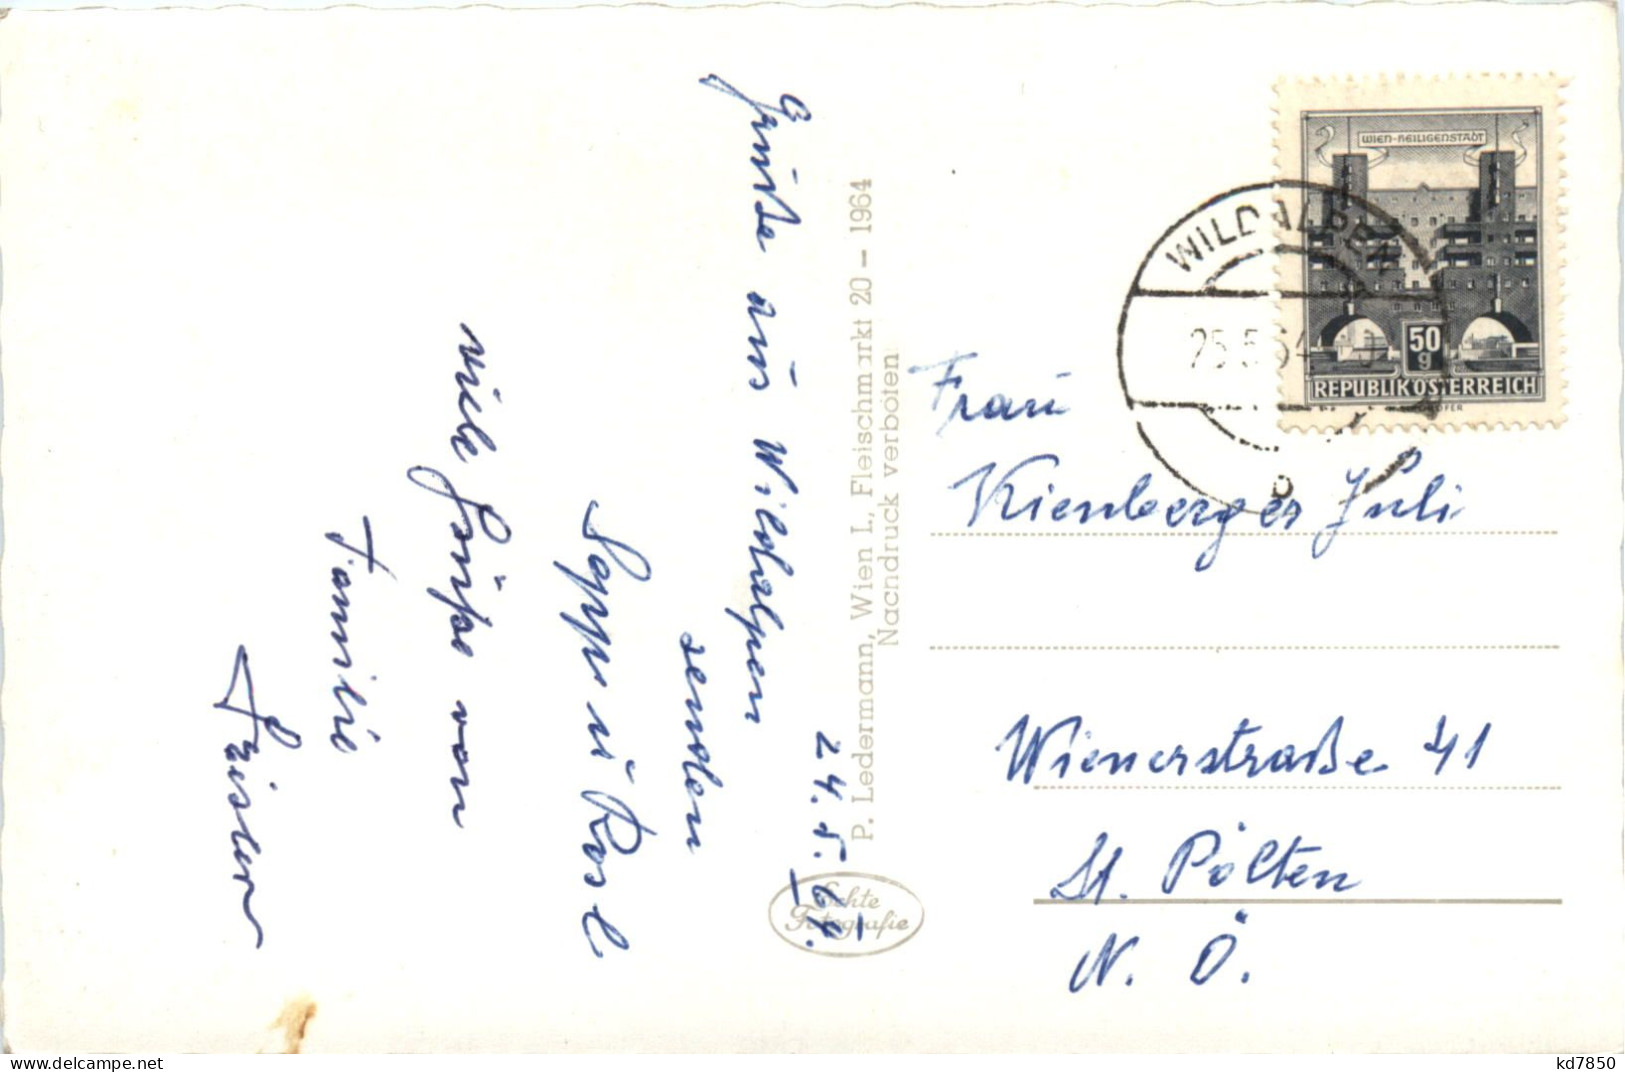 24. 5. 64.
Grüße aus Wildalpen
senden
Sepp u Rosl
viele Grüße von
Familie
P. Ledermann, Wien I., Fleischmarkt 20 – 1964
Nachdruck verboten
Echte
Fotografie
WIEN-HEILIGENSTADT
50
g
REPUBLIK ÖSTERREICH
WILDALPEN
25.5.64
b
Frau
Kienberger Juli
Wienerstraße 41
St. Pölten
N. Ö.
www.delcampe.net
kd7850